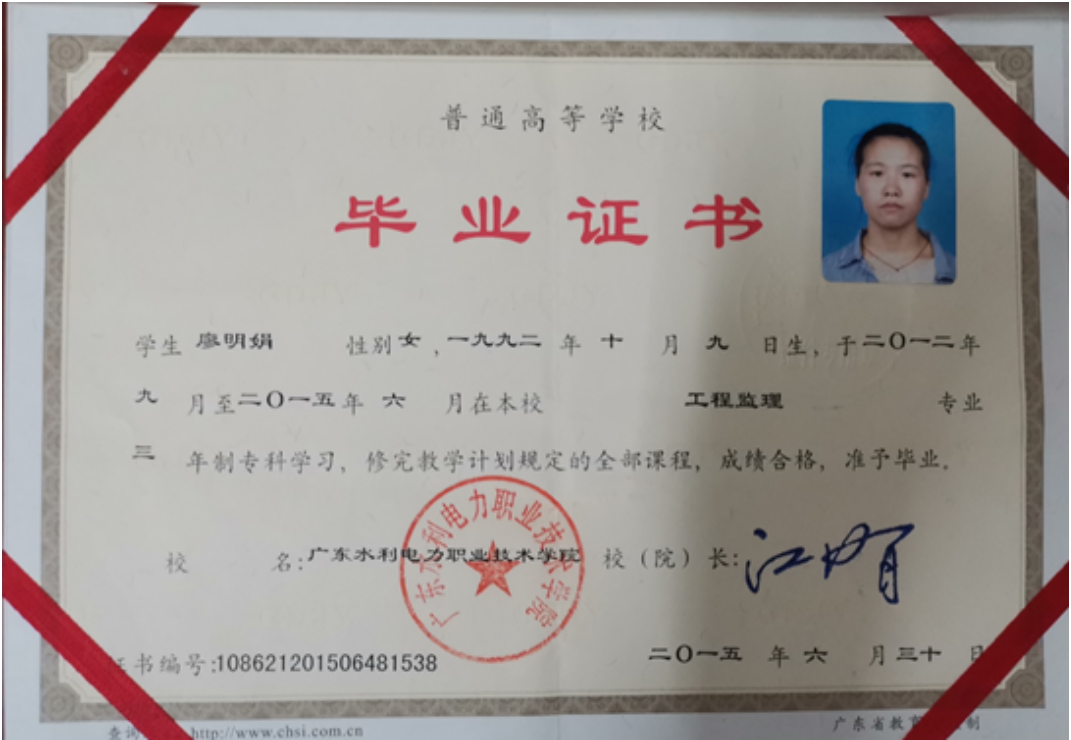 普通高等学校
毕业证书
学生 廖明娟 性别 女，一九九二 年 十 月 九 日生，于二〇一二年
九 月至二〇一五年 六 月在本校 工程监理 专业
三 年制专科学习，修完教学计划规定的全部课程，成绩合格，准予毕业。
校 名：广东水利电力职业技术学院 校（院）长：
广东水利电力职业技术学院
证书编号:108621201506481538 二〇一五 年 六 月三十 日
查询 http://www.chsi.com.cn 广东省教育 制